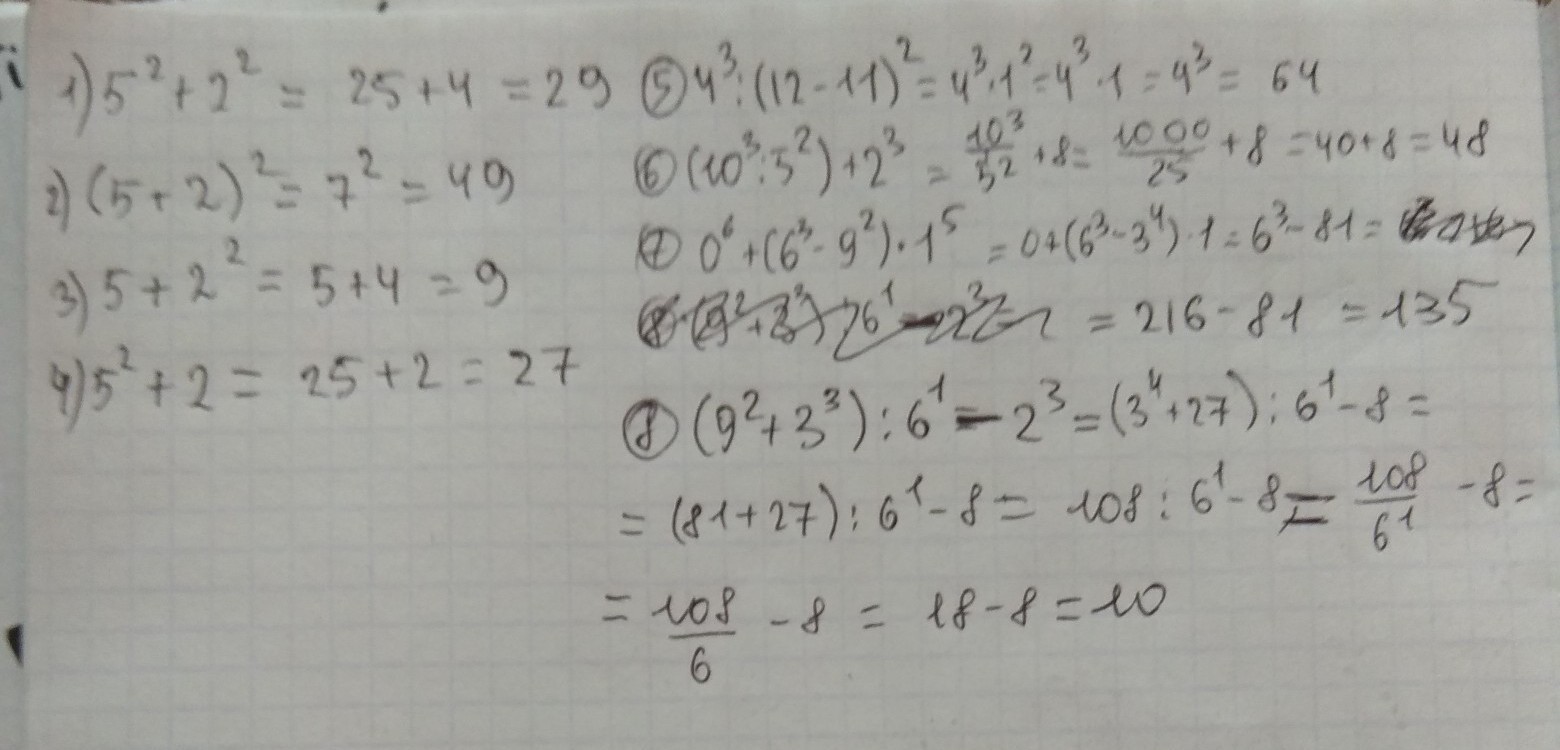 1) 5² + 2² = 25 + 4 = 29
2) (5 + 2)² = 7² = 49
3) 5 + 2² = 5 + 4 = 9
4) 5² + 2 = 25 + 2 = 27
⑤ 4³ : (12 - 11)² = 4³ · 1² = 4³ · 1 = 4³ = 64
⑥ (10³ : 5²) + 2³ = 10³/5² + 8 = 1000/25 + 8 = 40 + 8 = 48
⑦ 0⁶ + (6³ - 9²) · 1⁵ = 0 + (6³ - 3⁴) · 1 = 6³ - 81 =
= 216 - 81 = 135
⑧ (9² + 3³) : 6¹ - 2³ = (3⁴ + 27) : 6¹ - 8 =
= (81 + 27) : 6¹ - 8 = 108 : 6¹ - 8 = 108/6¹ - 8 =
= 108/6 - 8 = 18 - 8 = 10